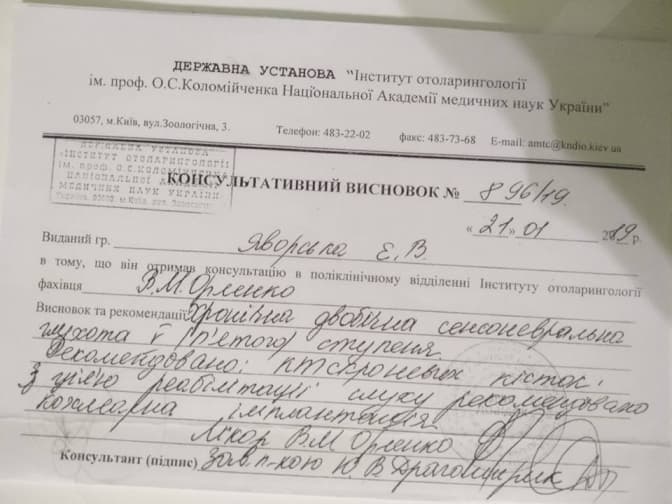 ДЕРЖАВНА УСТАНОВА "Інститут отоларингології
ім. проф. О.С.Коломійченка Національної Академії медичних наук України"
03057, м.Київ, вул.Зоологічна, 3. Телефон: 483-22-02 факс: 483-73-68 E-mail: amtc@kndio.kiev.ua
ДЕРЖАВНА УСТАНОВА
«ІНСТИТУТ ОТОЛАРИНГОЛОГІЇ
ІМ. ПРОФ. О.С.КОЛОМІЙЧЕНКА
НАЦІОНАЛЬНОЇ АКАДЕМІЇ
МЕДИЧНИХ НАУК УКРАЇНИ»
КОНСУЛЬТАТИВНИЙ ВИСНОВОК № 896/19
«21» 01 2019 р.
Виданий гр. Яворська Є. В
в тому, що він отримав консультацію в поліклінічному відділенні Інституту отоларингології
фахівця В.М.Орленко
Висновок та рекомендації Хронічна двобічна сенсоневральна
глухота V (п'ятого) ступеня
Рекомендовано: КТ скроневих кісток.
З цілю реабілітації слуху рекомендовано
кохлеарна імплантація
Лікар В.М Орленко
Консультант (підпис) Зав. п-кою Ю.В